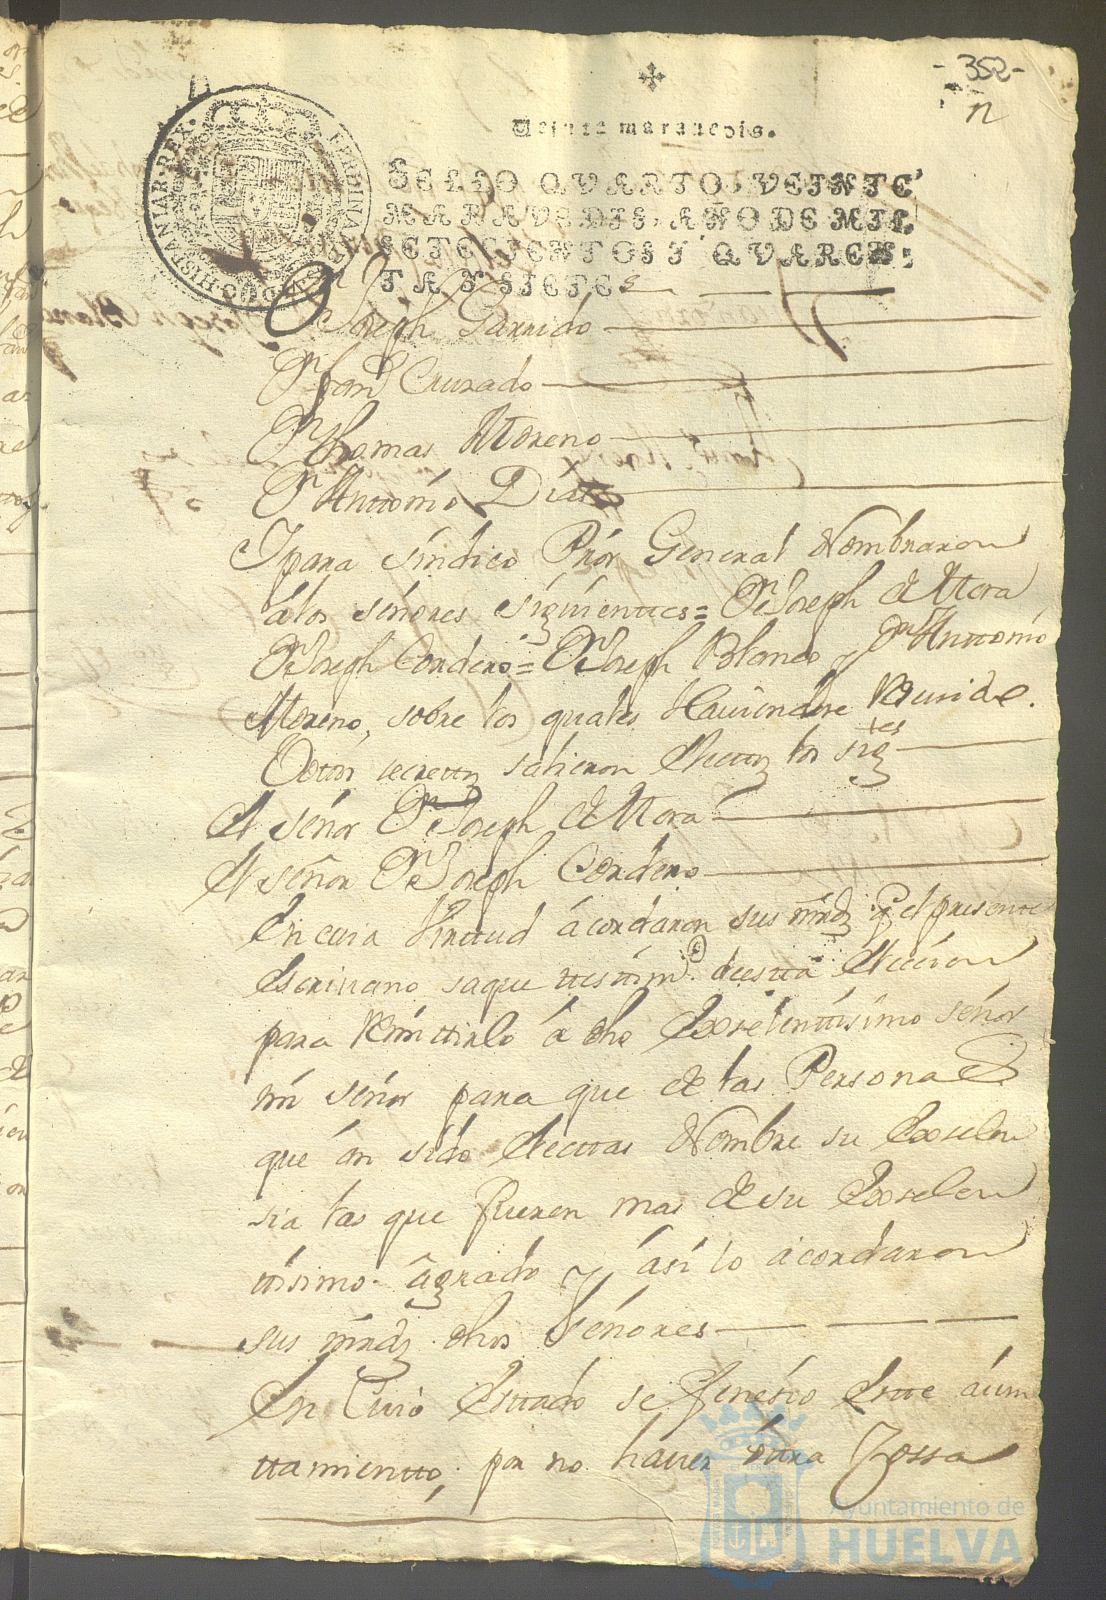 -352-
n
Veinte marauedis.
SELLO QVARTO, VEINTE
MARAVEDIS, AÑO DE MIL
SETECIENTOS Y QVAREN-
TA Y SIETE
HISPANIAR·REX·
Dn Joseph Garrido
Dn Cruzado
Dn Thomas Moreno
Dn Anttonio Dias
Y para síndico Prór General Nombraron
á los señores siguienttes= Dn Joseph de Mora
Dn Joseph Cordero= Dn Joseph Blanco y Dn Anttonio
Moreno, sobre los quales Haviendose Reunido
Vottos secrettos salieron electtos los sigtes
El señor Dn Joseph de Mora
El señor Dn Joseph Cordero
En cuia Virttud ácordaron sus mrds q el presente
Escrivano saque ttesttimo destta elección
para Remittirlo á dho Exselenttísimo señor
mi señor para que de las Personas
que án sido electtas Nombre su Exselen
sia las que fueren mas de su Exselen
ttísimo ágrado y ási lo ácordaron
sus mrds dhos Señores
En Cuio Esttado se fenesio estte áiun
ttamientto, por no haver óttra Cossa
Ayuntamiento de
HUELVA